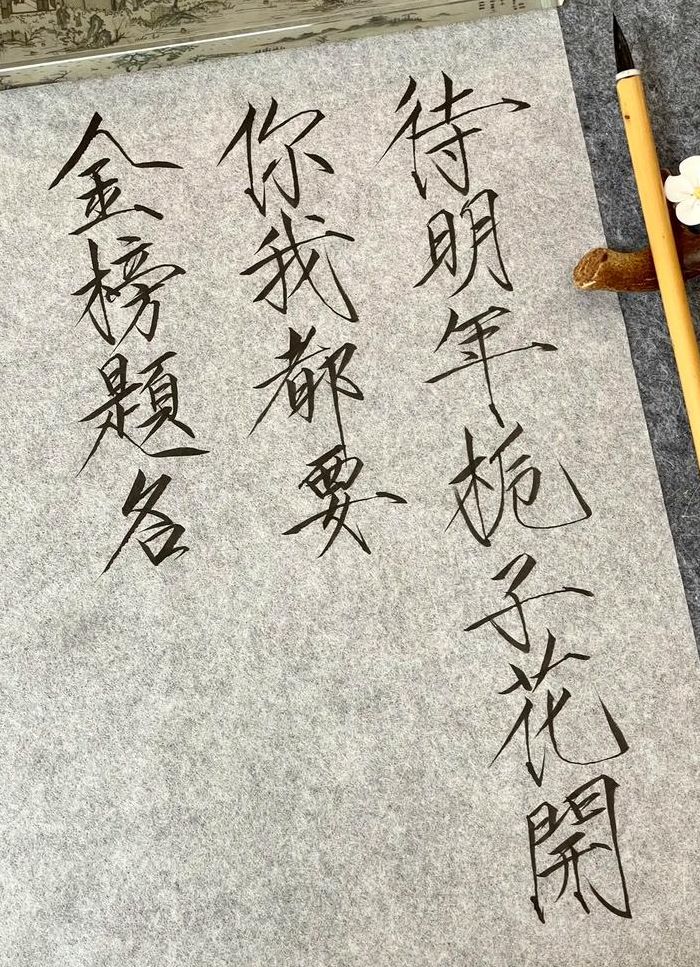 待明年栀子花開
你我都要
金榜題名